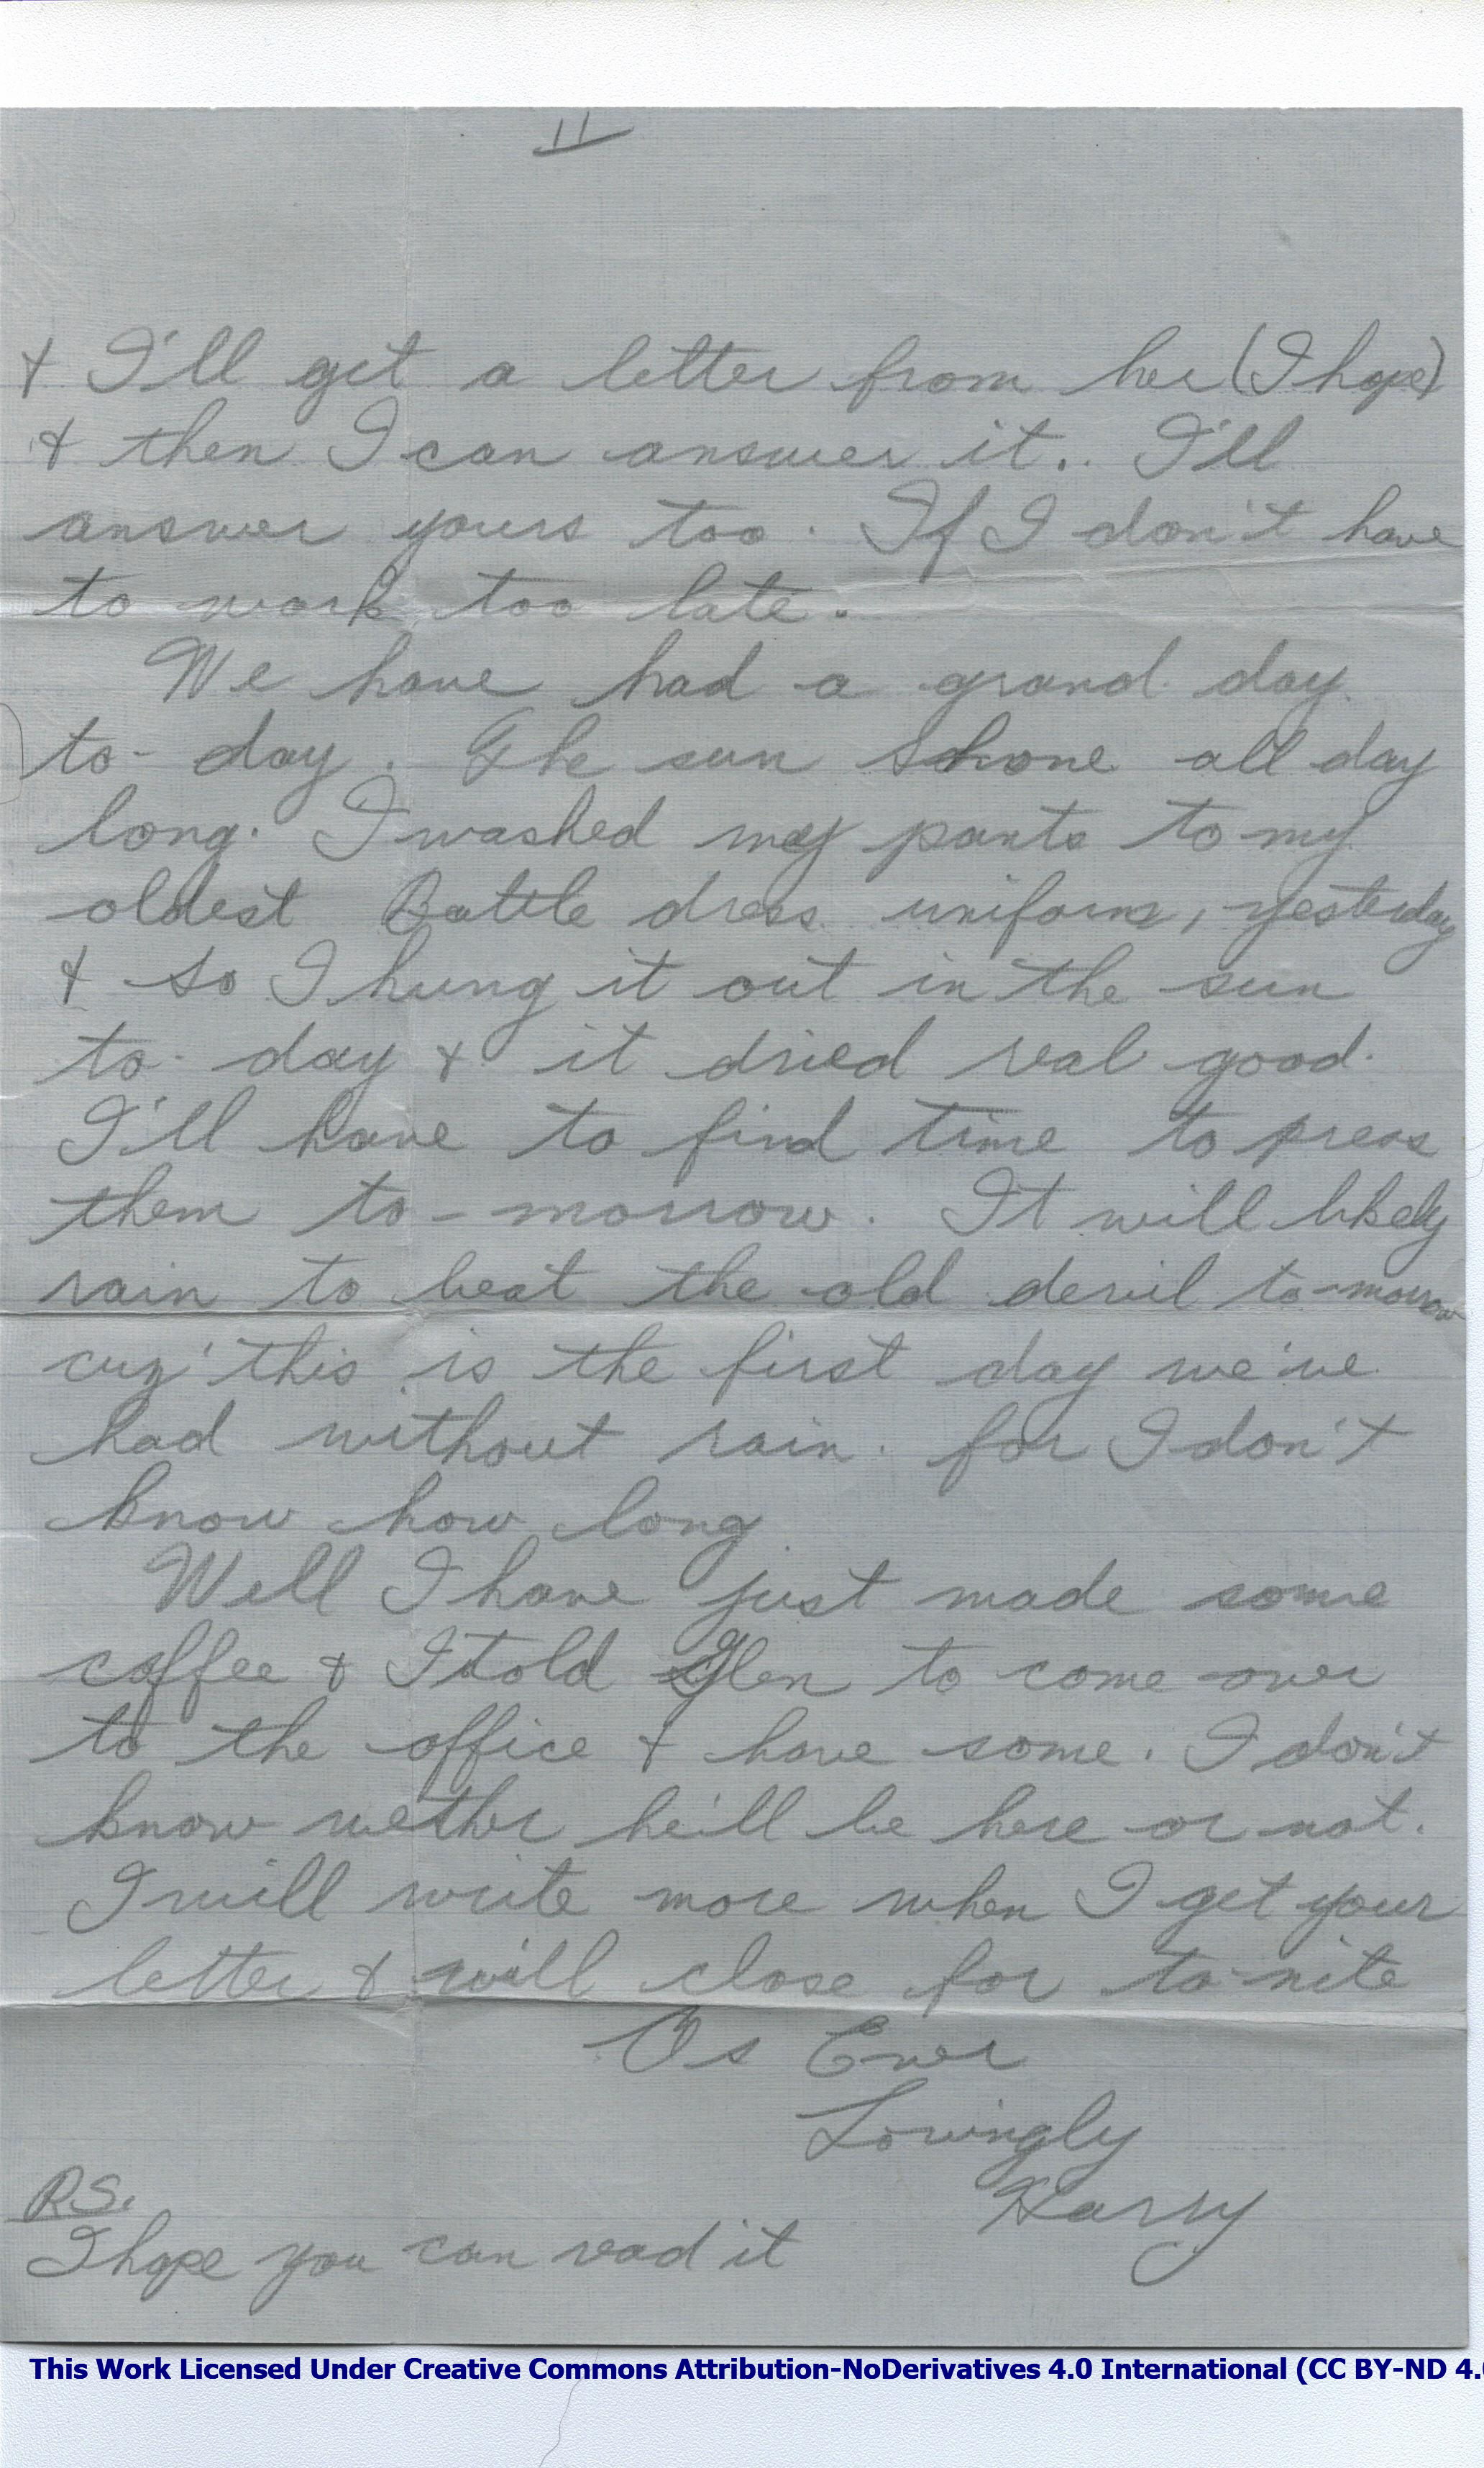 11
& I'll get a letter from her (I hope)
& then I can answer it.. I'll
answer yours too. If I don't have
to work too late.
We have had a grand day
to-day. The sun shone all day
long. I washed my pants to my
oldest Battle dress uniform, yesterday
& so I hung it out in the sun
to-day & it dried real good.
I'll have to find time to press
them to-morrow. It will likely
rain to beat the old devil to-morrow
cuz' this is the first day we've
had without rain. for I don't
know how long
Well I have just made some
coffee & I told Glen to come over
to the office & have some. I don't
know wether he'll be here or not.
I will write more when I get your
letter & will close for to-nite
As Ever
Lovingly
Harry
P.S.
I hope you can read it
This Work Licensed Under Creative Commons Attribution-NoDerivatives 4.0 International (CC BY-ND 4.